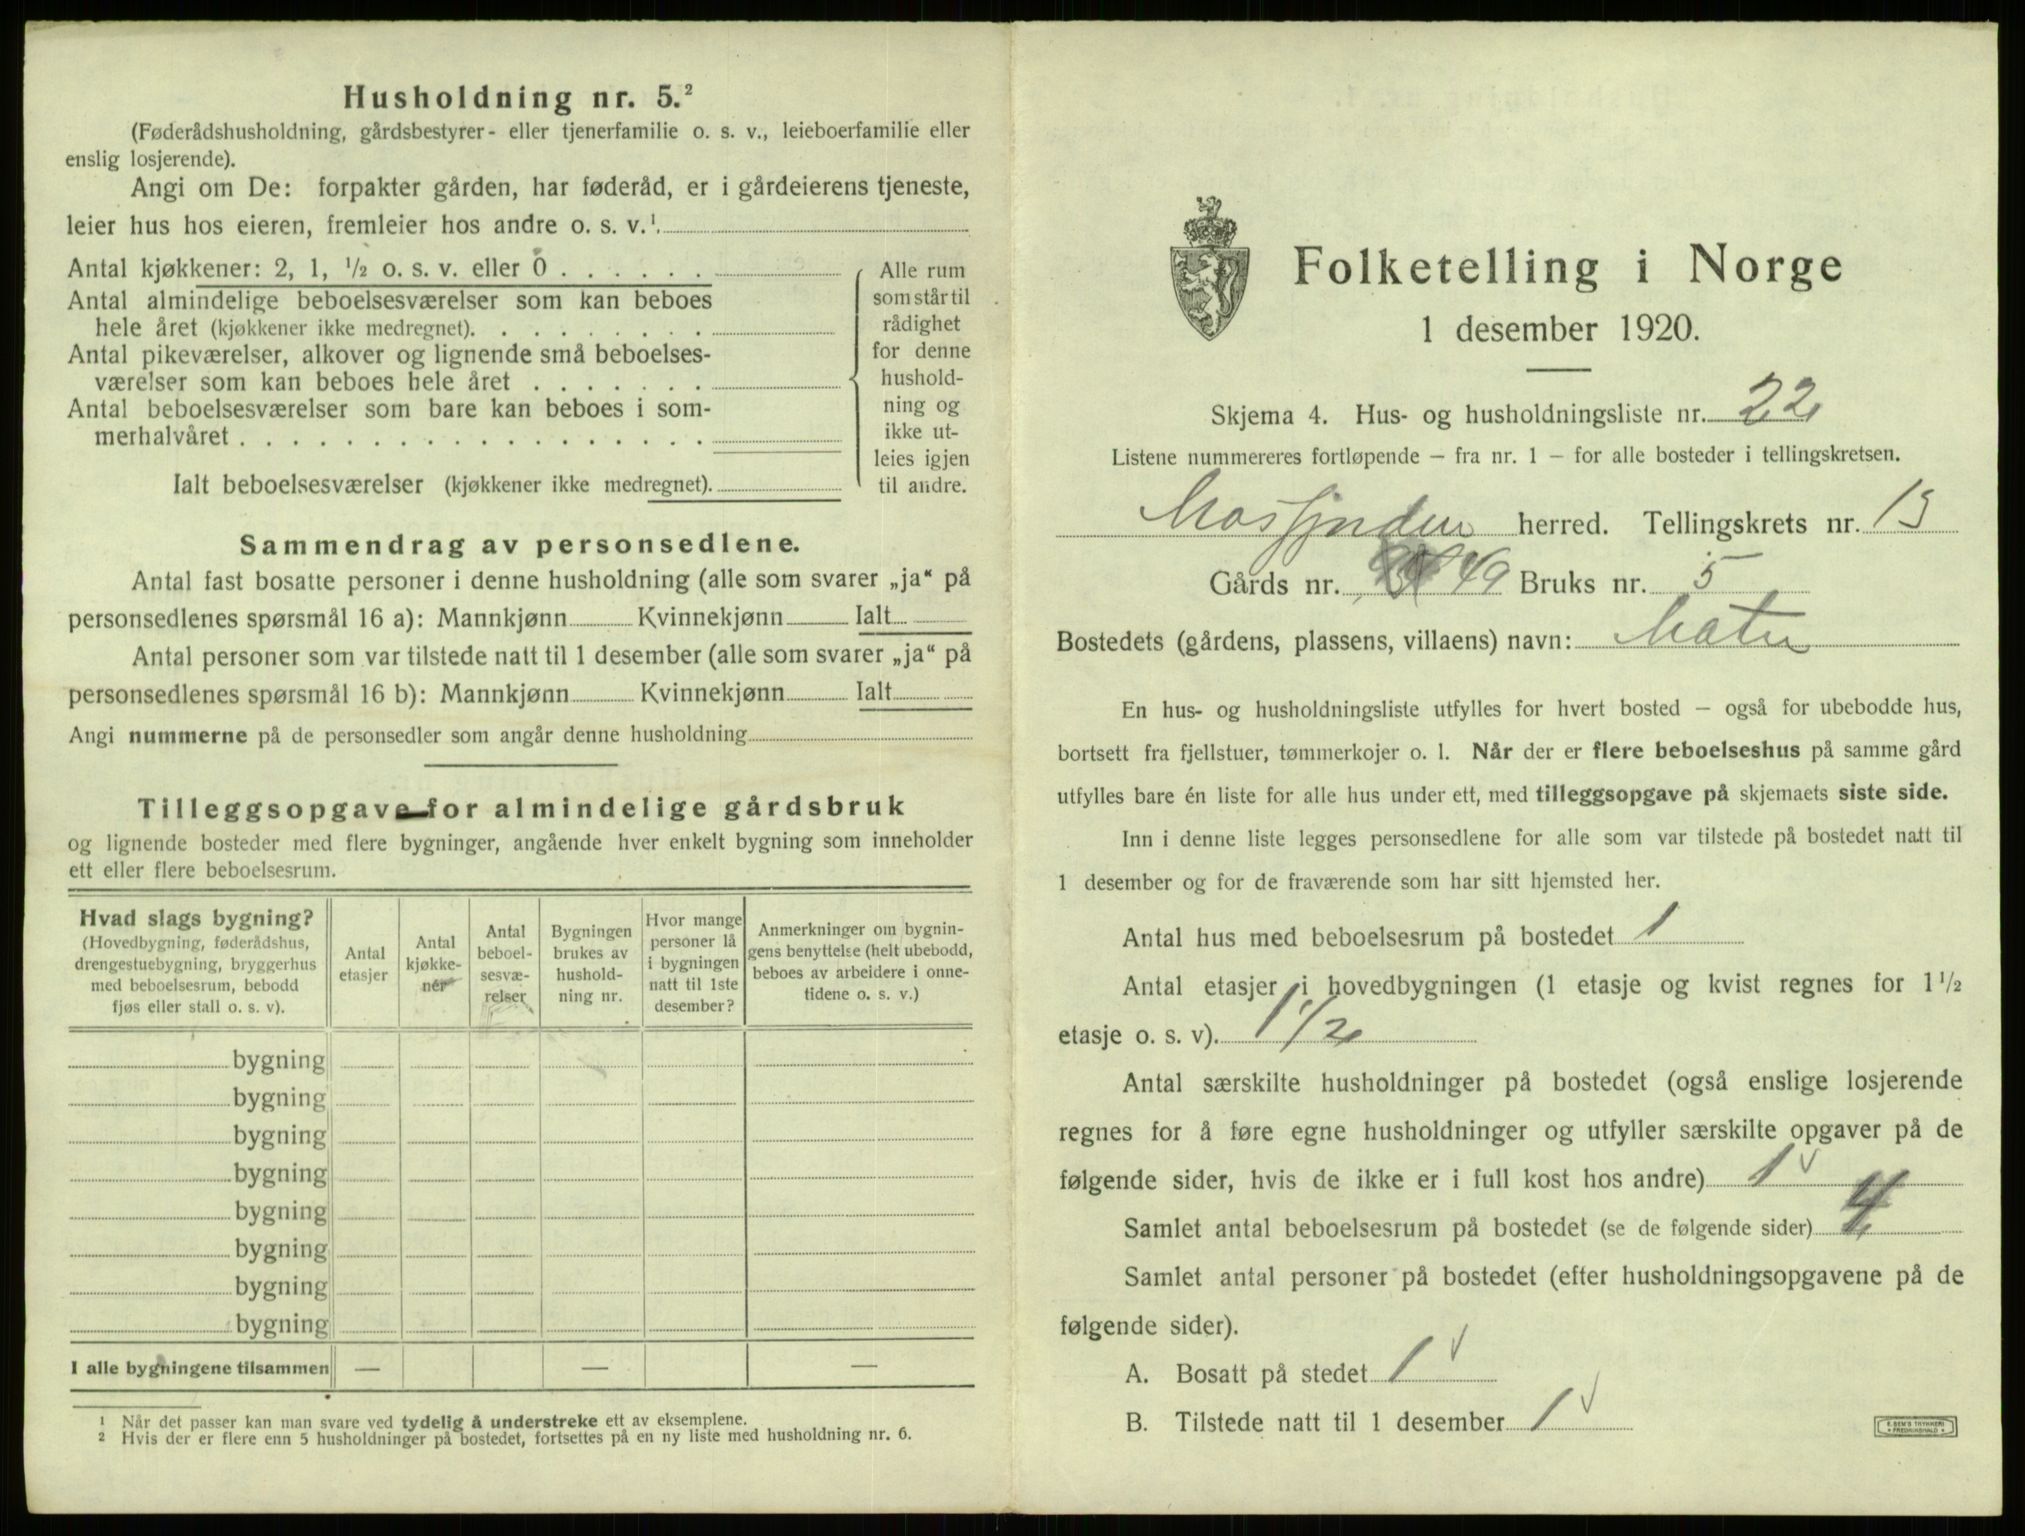 Husholdning nr. 5.²
(Føderådshusholdning, gårdsbestyrer- eller tjenerfamilie o. s. v., leieboerfamilie eller
enslig losjerende).
Angi om De: forpakter gården, har føderåd, er i gårdeierens tjeneste,
leier hus hos eieren, fremleier hos andre o. s. v.¹.
Antal kjøkkener: 2, 1, ½ o. s. v. eller 0 . . . . . .
Antal almindelige beboelsesværelser som kan beboes
hele året (kjøkkener ikke medregnet). . . . . . . . .
Antal pikeværelser, alkover og lignende små beboelses-
værelser som kan beboes hele året . . . . . . .
Antal beboelsesværelser som bare kan beboes i som-
merhalvåret . . . . . . . . . . . . . . . . . .
Ialt beboelsesværelser (kjøkkener ikke medregnet).
Alle rum
som står til
rådighet
for denne
hushold-
ning og
ikke ut-
leies igjen
til andre.
Sammendrag av personsedlene.
Antal fast bosatte personer i denne husholdning (alle som svarer „ja“ på
personsedlenes spørsmål 16 a): Mannkjønn Kvinnekjønn Ialt
Antal personer som var tilstede natt til 1 desember (alle som svarer „ja“ på
personsedlenes spørsmål 16 b): Mannkjønn Kvinnekjønn Ialt
Angi nummerne på de personsedler som angår denne husholdning
Tilleggsopgave for almindelige gårdsbruk
og lignende bosteder med flere bygninger, angående hver enkelt bygning som inneholder
ett eller flere beboelsesrum.
Hvad slags bygning?
(Hovedbygning, føderådshus,
drengestuebygning, bryggerhus
med beboelsesrum, bebodd
fjøs eller stall o. s. v).
Antal
etasjer
Antal
kjøkke-
ner
Antal
beboel-
sesvæ-
relser
Bygningen
brukes av
hushold-
ning nr.
Hvor mange
personer lå
i bygningen
natt til 1ste
desember?
Anmerkninger om bygnin-
gens benyttelse (helt ubebodd,
beboes av arbeidere i onne-
tidene o. s. v.)
bygning
bygning
bygning
bygning
bygning
bygning
bygning
bygning
I alle bygningene tilsammen — — —
¹ Når det passer kan man svare ved tydelig å understreke ett av eksemplene.
² Hvis der er flere enn 5 husholdninger på bostedet, fortsettes på en ny liste med husholdning nr. 6.
Folketelling i Norge
1 desember 1920.
Skjema 4. Hus- og husholdningsliste nr. 22
Listene nummereres fortløpende – fra nr. 1 – for alle bosteder i tellingskretsen.
Masfjorden herred. Tellingskrets nr. 13
Gårds nr. 49 Bruks nr. 5
Bostedets (gårdens, plassens, villaens) navn: Matre
En hus- og husholdningsliste utfylles for hvert bosted – også for ubebodde hus,
bortsett fra fjellstuer, tømmerkojer o. l. Når der er flere beboelseshus på samme gård
utfylles bare én liste for alle hus under ett, med tilleggsopgave på skjemaets siste side.
Inn i denne liste legges personsedlene for alle som var tilstede på bostedet natt til
1 desember og for de fraværende som har sitt hjemsted her.
Antal hus med beboelsesrum på bostedet 1
Antal etasjer i hovedbygningen (1 etasje og kvist regnes for 1½
etasje o. s. v). 1½
Antal særskilte husholdninger på bostedet (også enslige losjerende
regnes for å føre egne husholdninger og utfyller særskilte opgaver på de
følgende sider, hvis de ikke er i full kost hos andre) 1 v
Samlet antal beboelsesrum på bostedet (se de følgende sider) 4
Samlet antal personer på bostedet (efter husholdningsopgavene på de
følgende sider).
A. Bosatt på stedet 1 v
B. Tilstede natt til 1 desember 1 v
E. SEM'S TRYKKERI
FREDRIKSHALD